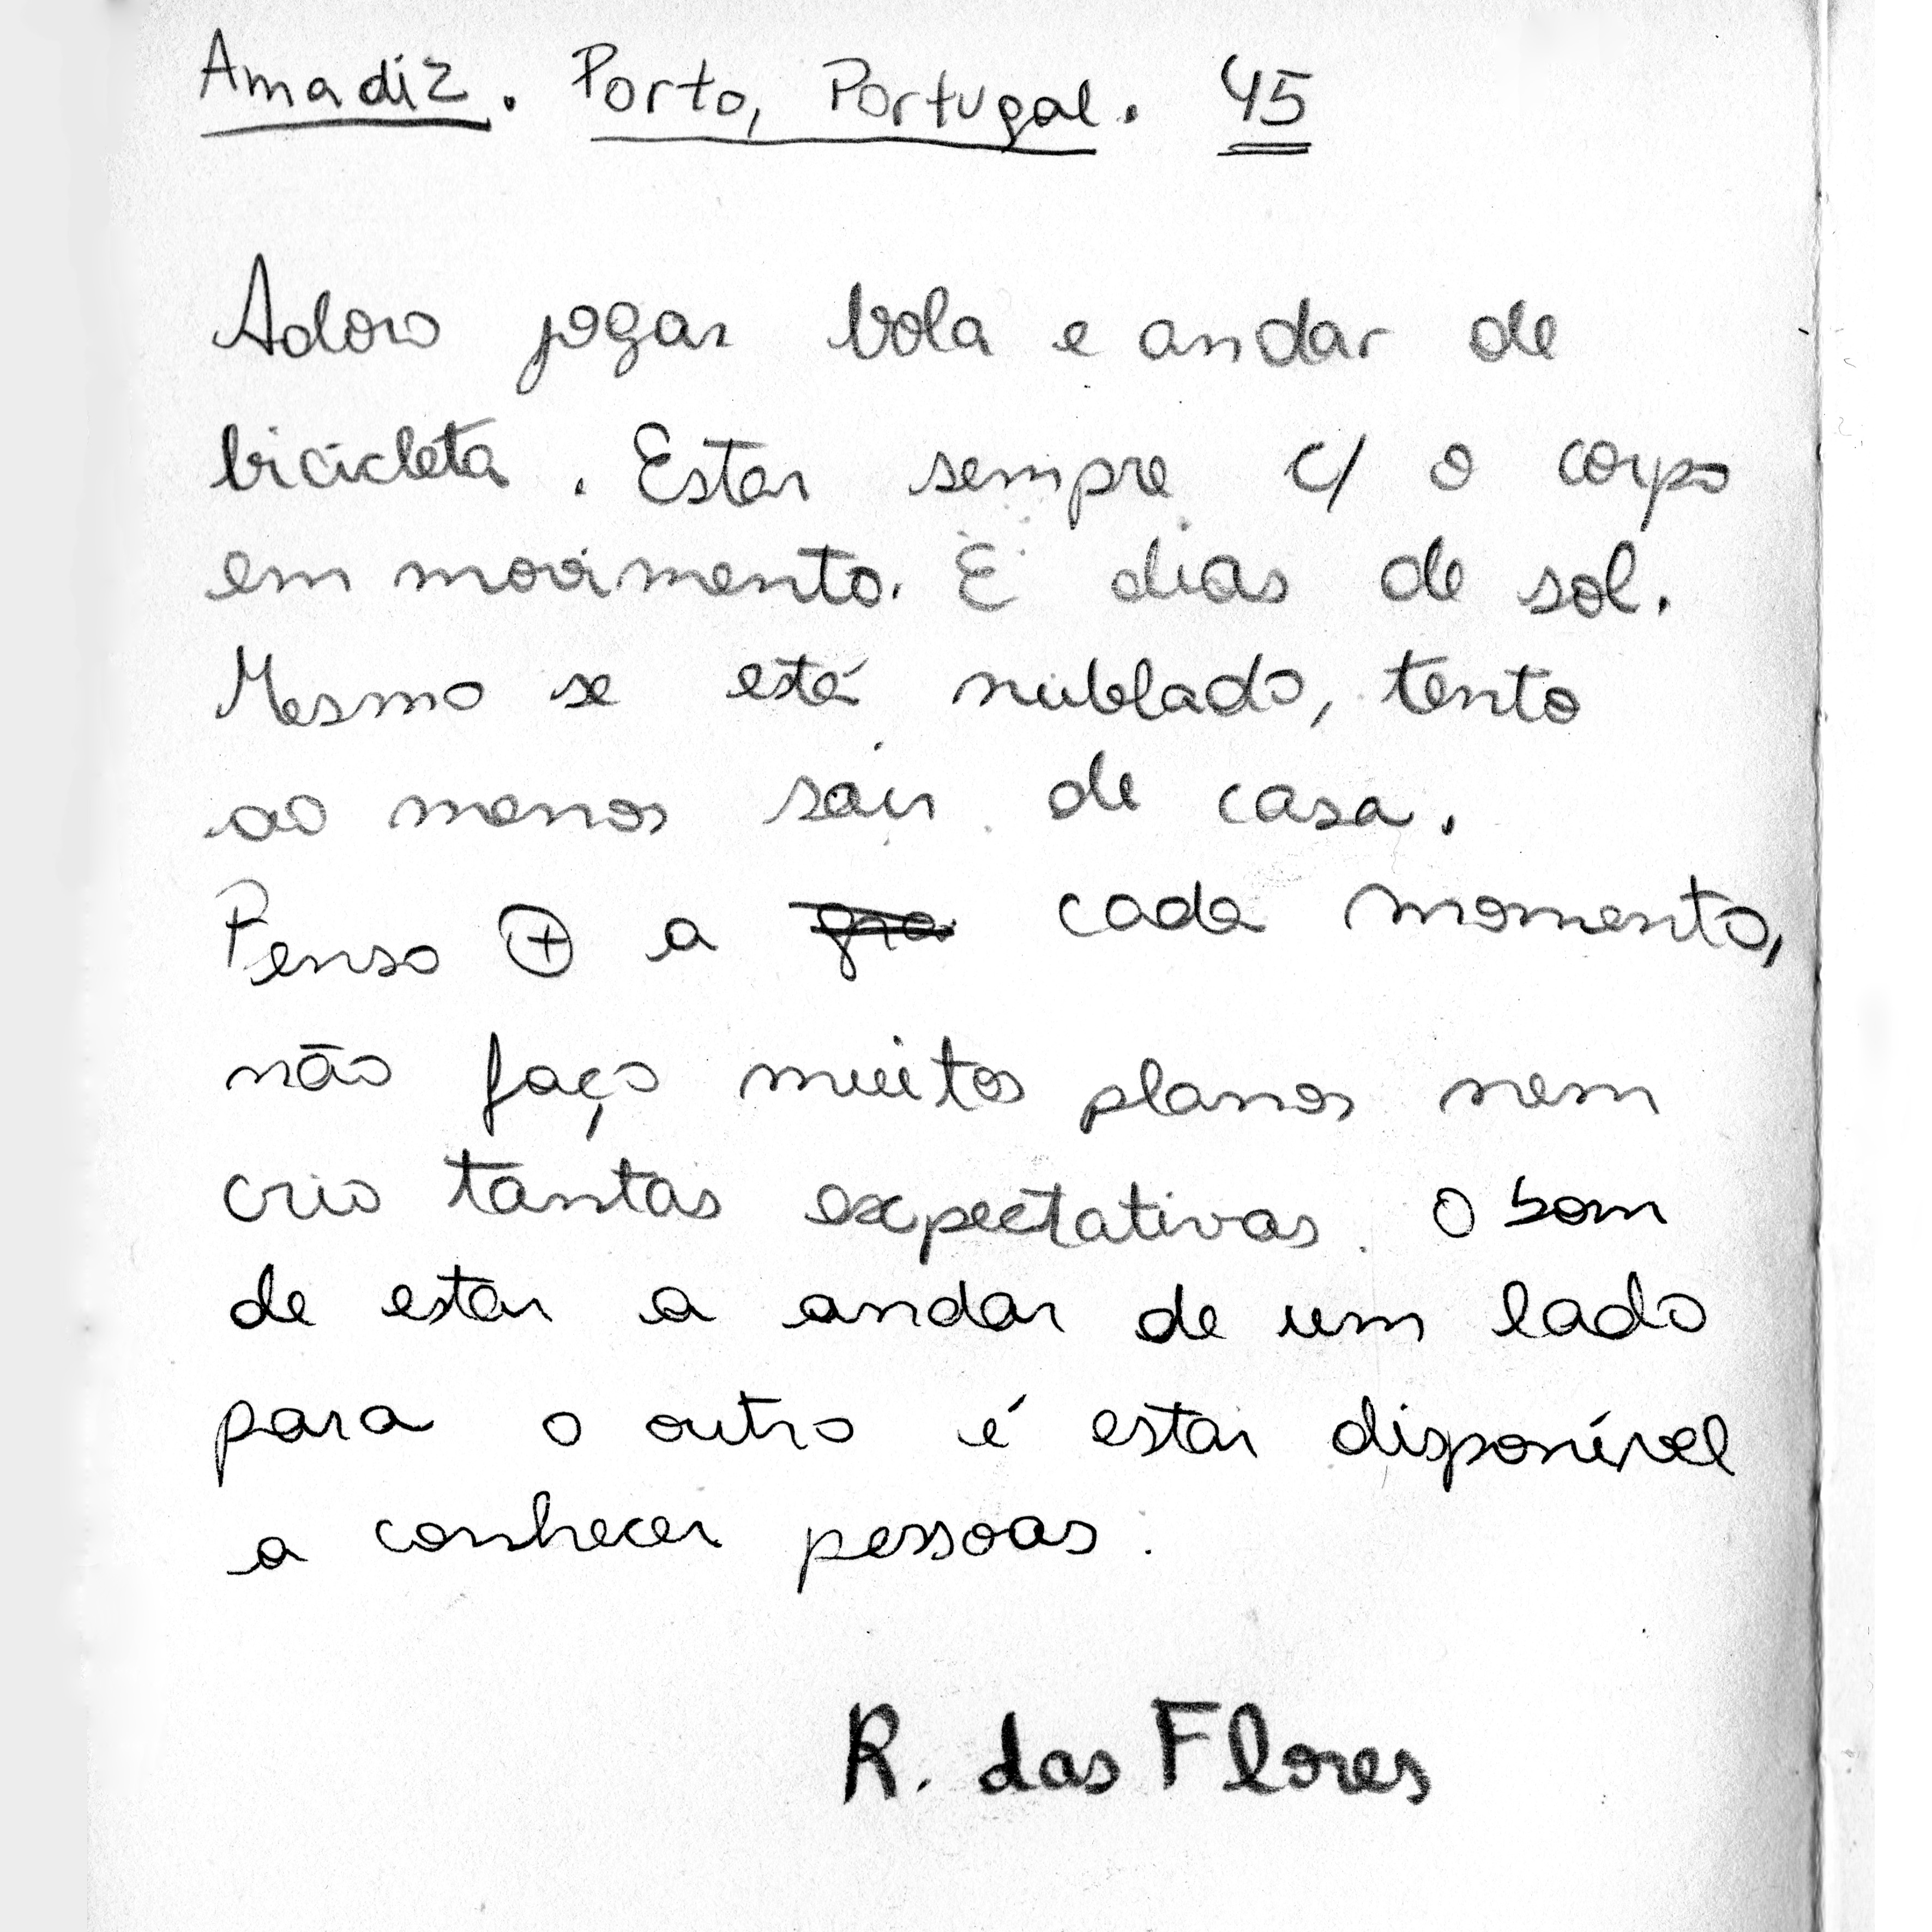 Amadiz. Porto, Portugal. 45
Adoro jogar bola e andar de
bicicleta. Estar sempre c/ o corpo
em movimento. E dias de sol.
Mesmo se está nublado, tento
ao menos sair de casa.
Penso ⊕ a cada momento,
não faço muitos planos nem
crio tantas expectativas. O bom
de estar a andar de um lado
para o outro é estar disponível
a conhecer pessoas.
R. das Flores